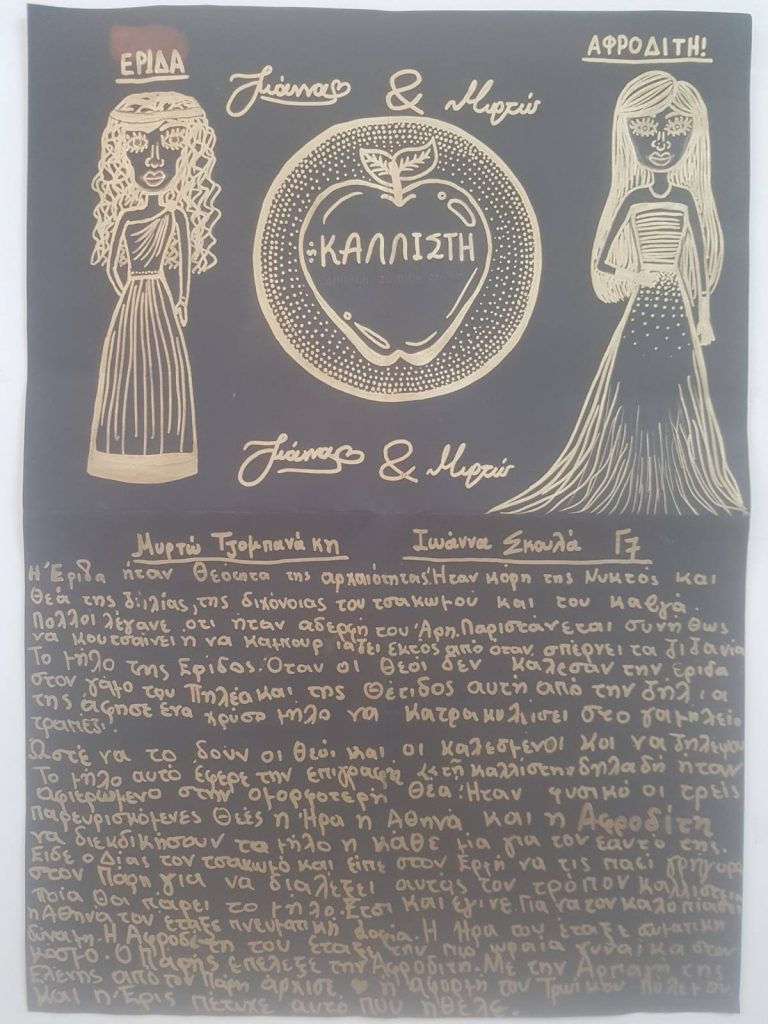 ΕΡΙΔΑ
ΑΦΡΟΔΙΤΗ!
Γιάννα & Μιρτώ
ΚΑΛΛΙΣΤΗ
Γιάννα & Μιρτώ
Μυρτώ Τζομπανάκη Ιωάννα Σκουλά Γ7
Η Έριδα ήταν θεότητα της αρχαιότητας. Ήταν κόρη της Νυκτός και
θεά της ζήλιας, της διχόνοιας του τσακωμού και του καβγά.
Πολλοί λέγανε οτι ήταν αδερφή του Άρη. Παριστάνεται συνήθως
να κουτσαίνει ή να καμπουριάζει εκτός από όταν σπέρνει τα ζιζάνια
Το μήλο της Έριδος. Όταν οι θεοί δεν κάλεσαν την έριδα
στον γάμο του Πηλέα και της Θέτιδος αυτή από την ζήλια
της άφησε ένα χρυσό μήλο να κατρακυλήσει στο γαμηλείο
τραπέζι.
Ώστέ να το δουν οι θεοί και οι καλεσμένοι και να ζηλεψουν
Το μήλο αυτό έφερε την επιγραφή «τῇ καλλίστῃ» δηλαδή ήταν
αφιερωμένο στην ομορφότερη θεά. Ήταν φυσικό οι τρείς
παρευρισκόμενες θεές η Ήρα η Αθηνά και η Αφροδίτη
να διεκδικήσουν το μήλο η κάθε μια για τον εαυτό της.
Είδε ο Δίας τον τσακωμό και είπε στον Ερμή να τις πάει γρήγορα
στον Πάρη για να διαλέξει αυτός τον τρόπον καλλιστεία
ποία θα πάρει το μήλο. Έτσι και έγινε. Για να τον καλοπιάσει
η Αθηνά του έταξε πνευματική σοφία. Η Ήρα του έταξε σωματική
δύναμη. Η Αφροδίτη του έταξε την πιο ωραία γυναίκα στον
κόσμο. Ο Πάρης επέλεξε την Αφροδίτη. Με την Αρπαγή της
Ελένης από τον Πάρη άρχισε η αφορμή του Τρωικου Πολέμου
και η Έρις πέτυχε αυτό που ήθελε.